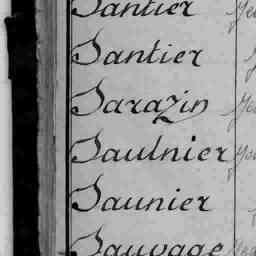 Santier
Santier
Sarazin
Saulnier
Saunier
Sauvage